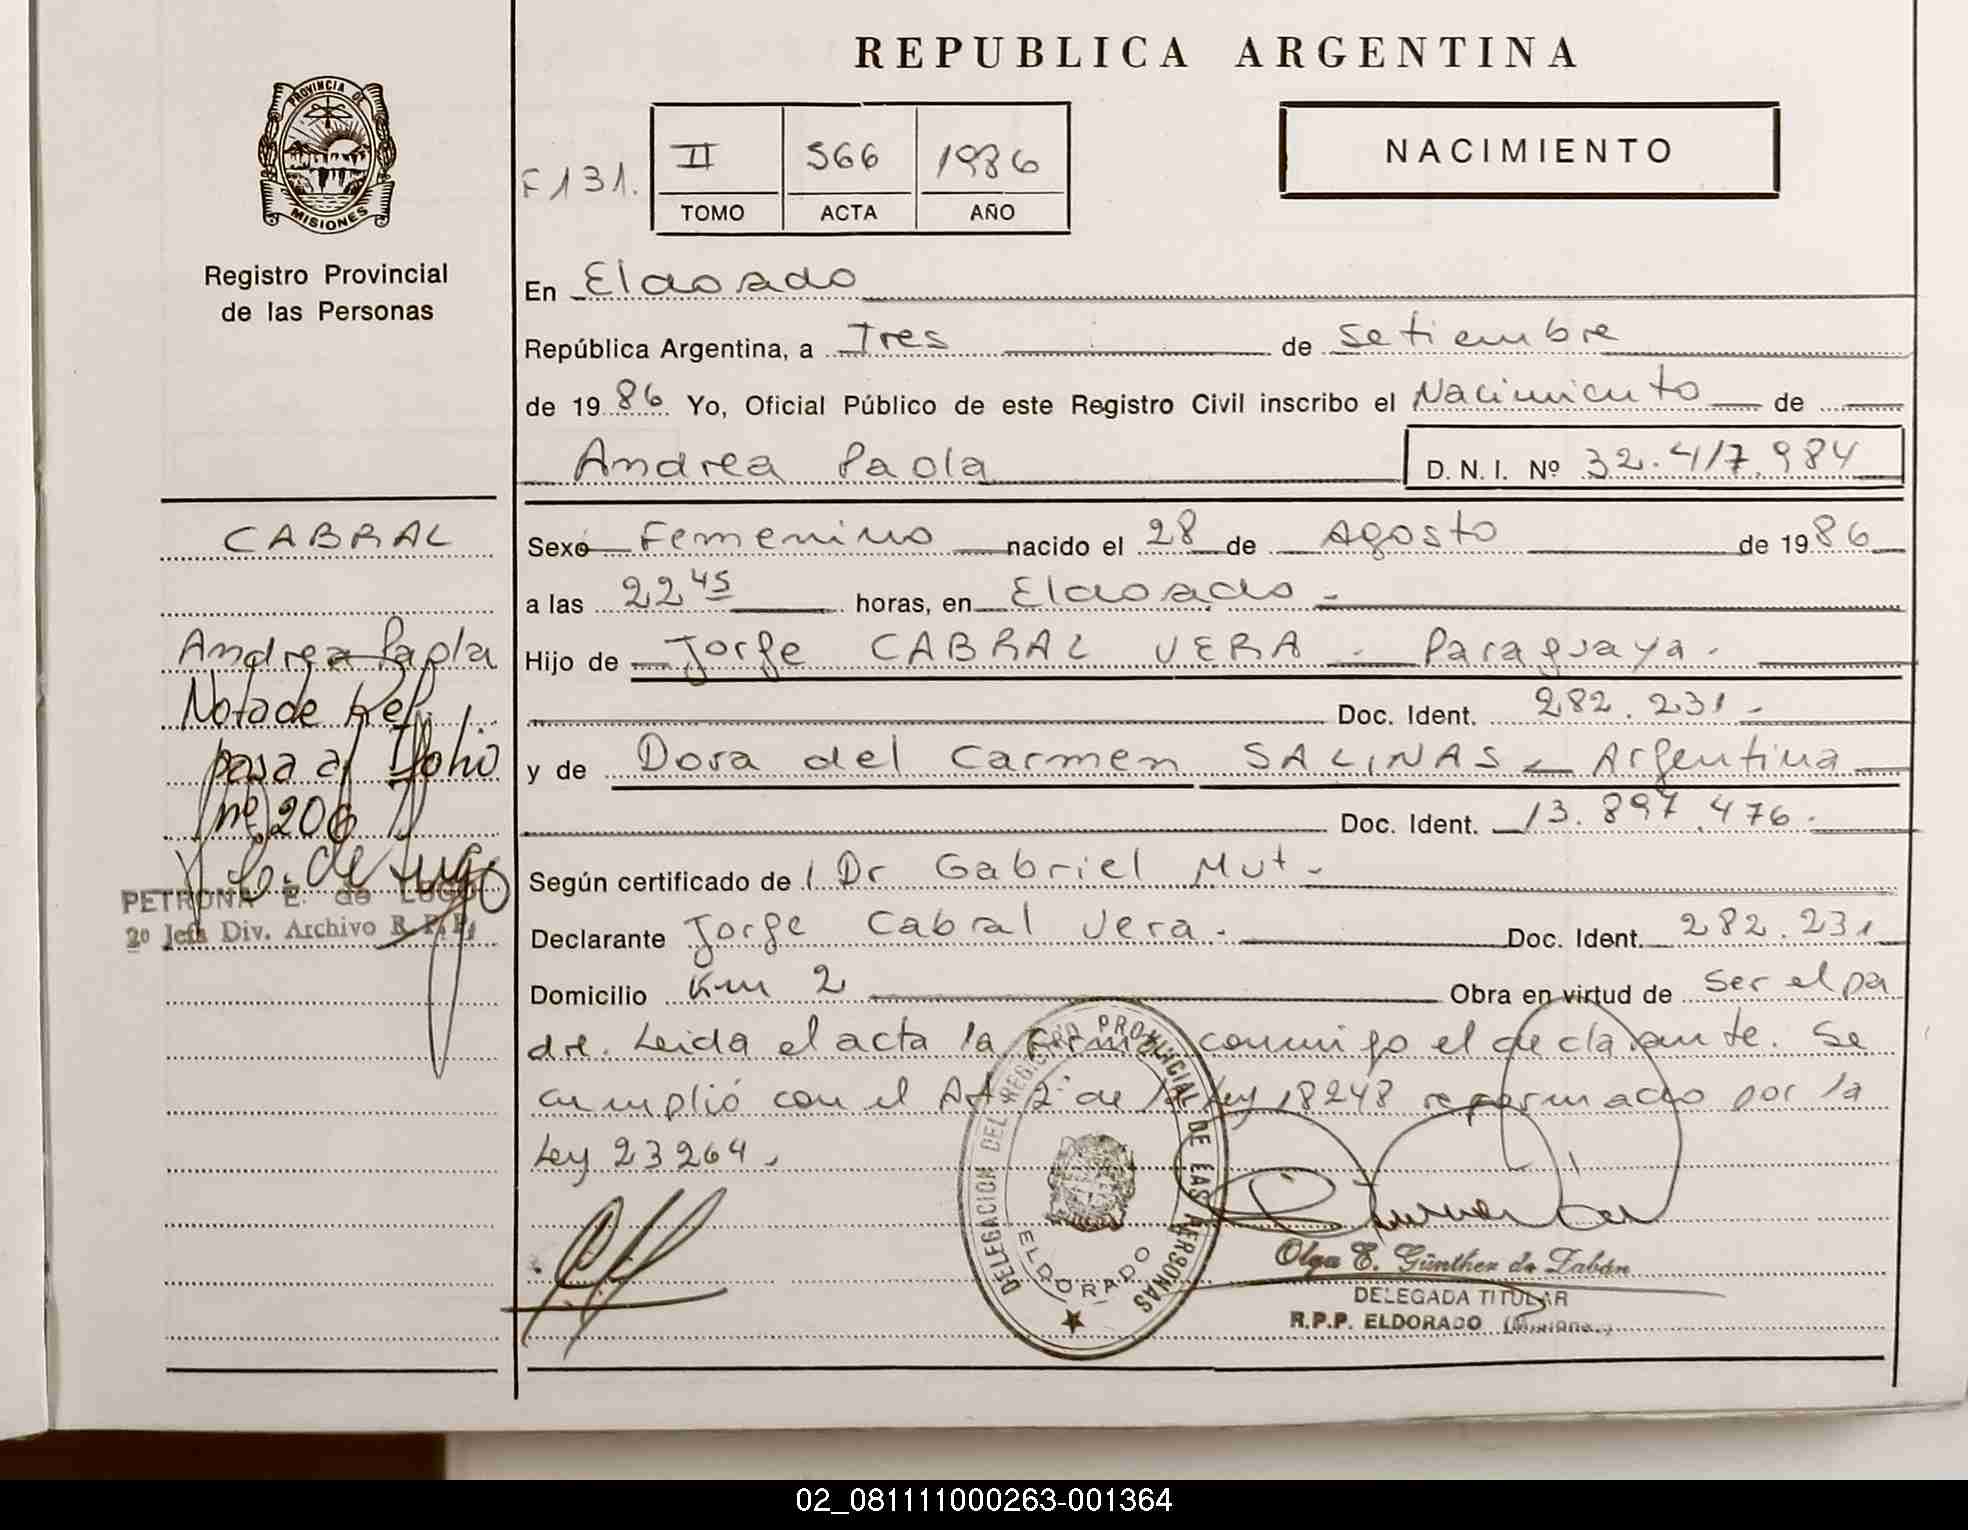 REPUBLICA ARGENTINA
PROVINCIA DE
MISIONES
Registro Provincial
de las Personas
F 131.
II 566 1986
TOMO ACTA AÑO
NACIMIENTO
En Eldorado
República Argentina, a Tres de Setiembre
de 1986 Yo, Oficial Público de este Registro Civil inscribo el Nacimiento de
Andrea Paola D. N. I. Nº 32.417.984
CABRAL
Andrea Paola
Nota de Ref.
pasa al folio
nº 206
PETRONA E. de LUGO
2º Jefa Div. Archivo R.P.P.
Sexo Femenino nacido el 28 de Agosto de 1986
a las 22 45 horas, en Eldorado -
Hijo de Jorge CABRAL VERA - Paraguaya.
Doc. Ident. 282.231 -
y de Dora del Carmen SALINAS - Argentina
Doc. Ident. 13.897.476.
Según certificado de Dr Gabriel Mut -
Declarante Jorge Cabral Vera. Doc. Ident. 282.231
Domicilio Km 2 Obra en virtud de ser el pa
dre. Leida el acta la firma conmigo el declarante. Se
cumplió con el Art 2º de la Ley 18248 reformado por la
Ley 23264.
DELEGACION DEL REGISTRO PROVINCIAL DE LAS PERSONAS
ELDORADO
Olga E. Günther de Zabán
DELEGADA TITULAR
R.P.P. ELDORADO (Misiones)
02_081111000263-001364